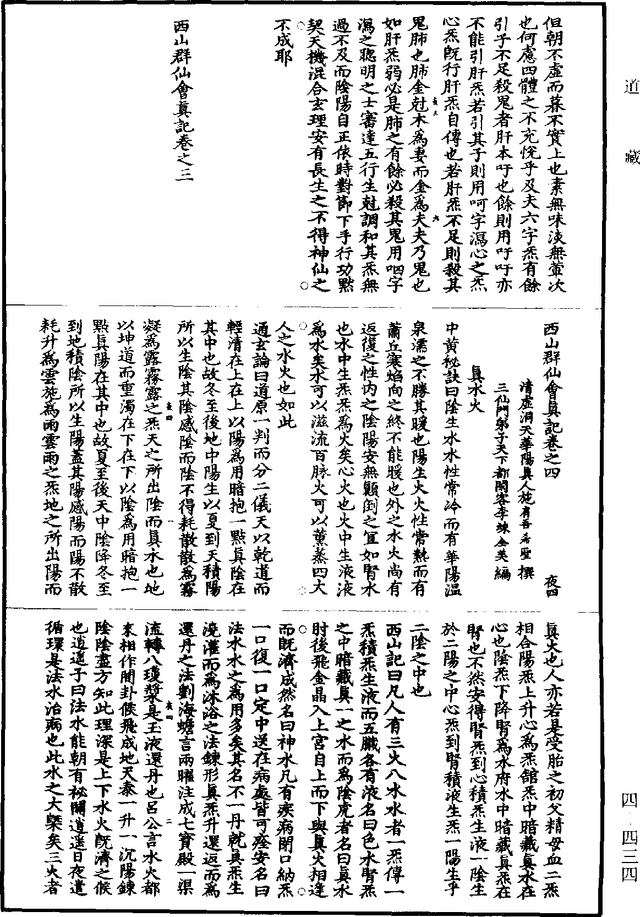 道藏
但朝不虛而暮不實上也素無味淡無葷次
也何慮四體之不充悅乎及夫六字炁有餘
引子不足殺鬼者肝本吁也餘則用吁吁亦
不能引肝炁若引其子則用呵字瀉心之炁
心炁既行肝炁自傳也若肝炁不足則殺其
鬼肺也肺金尅木為妻而金為夫夫乃鬼也
如肝炁弱必是肺之有餘必殺其鬼用呬字
瀉之聰明之士審達五行生尅調和其炁無
過不及而陰陽自正依時對節下手行功黙
契天機混合玄理安有長生之不得神仙之
不成耶
西山群仙會真記卷之三
西山群仙會真記卷之四
夜四
清虛洞天華陽真人施肩吾希聖撰
三仙門弟子天下都閑客李竦全美編
真水火
中黄秘訣曰陰生水水性常冷而有華陽温
泉濡之不勝其暖也陽生火火性常熱而有
蕭丘寒焰向之終不能暖也外之水火尚有
返復之性内之陰陽安無顛倒之宜如腎水
也水中生炁炁為火矣心火也火中生液液
為水矣水可以滋流百脉火可以薰蒸四大
人之水火也如此
通玄論曰道原一判而分二儀天以乾道而
輕清在上在上以陽為用暗抱一點真陰在
其中也故冬至後地中陽生以夏到天積陽
所以生陰其陰感陰而陰不得耗散散為霧
凝為露霧露之炁天之所出陰而真水也地
以坤道而重濁在下在下以陰為用暗抱一
點真陽在其中也故夏至後天中陰降冬至
到地積陰所以生陽蓋其陽感陽而陽不散
耗升為雲施為雨雲雨之炁地之所出陽而
真火也人亦若是受胎之初父精母血二炁
相合陽炁上升心為炁舘炁中暗藏真水在
心也陰炁下降腎為水府水中暗藏真炁在
腎也不然安得腎炁到心積炁生液一陰生
於二陽之中心炁到腎積液生炁一陽生乎
二陰之中也
西山記曰凡人有三火八水水者一炁傳一
炁積炁生液而五臟各有液名曰色水腎炁
之中暗藏真一之水而為陰虎者名曰真水
肘後飛金晶入上宮自上而下與真火相逢
而既濟成然名曰神水凡有疾病閉口納炁
一口復一口定中送在病處皆可痊安名曰
法水水之為用多矣其名不一丹就真炁生
澆灌而為沐浴之法錬形真炁升還返而為
還丹之法劉海蟾言兩曜注成七寶殿一渠
流轉八瓊漿是玉液還丹也吕公言水火都
來相作用卦候飛成地天泰一升一沉陽錬
陰陰盡方知此理深是上下水火既濟之候
也逍遥子曰法水能朝有秘關逍遥日夜遣
循環是法水治病也此水之大槩矣三火者
四-四三四